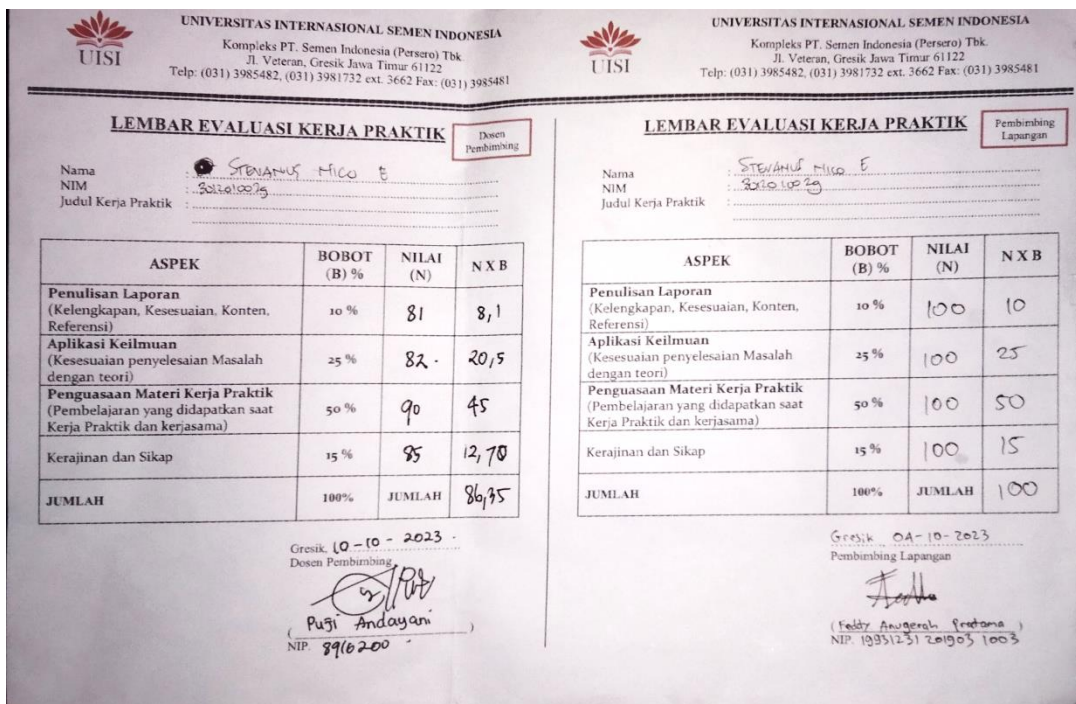 UNIVERSITAS INTERNASIONAL SEMEN INDONESIA
Kompleks PT. Semen Indonesia (Persero) Tbk.
Jl. Veteran, Gresik Jawa Timur 61122
Telp: (031) 3985482, (031) 3981732 ext. 3662 Fax: (031) 3985481
UISI
LEMBAR EVALUASI KERJA PRAKTIK
Dosen
Pembimbing
Nama : STEVANUS MICO E
NIM :
Judul Kerja Praktik :
ASPEK BOBOT (B) % NILAI (N) N X B
Penulisan Laporan
(Kelengkapan, Kesesuaian, Konten, 10 % 81 8,1
Referensi)
Aplikasi Keilmuan
(Kesesuaian penyelesaian Masalah 25 % 82 20,5
dengan teori)
Penguasaan Materi Kerja Praktik
(Pembelajaran yang didapatkan saat 50 % 90 45
Kerja Praktik dan kerjasama)
Kerajinan dan Sikap 15 % 85 12,70
JUMLAH 100% JUMLAH 86,35
Gresik, 10-10-2023
Dosen Pembimbing
( Puji Andayani )
NIP. 8916200
UNIVERSITAS INTERNASIONAL SEMEN INDONESIA
Kompleks PT. Semen Indonesia (Persero) Tbk.
Jl. Veteran, Gresik Jawa Timur 61122
Telp: (031) 3985482, (031) 3981732 ext. 3662 Fax: (031) 3985481
UISI
LEMBAR EVALUASI KERJA PRAKTIK
Pembimbing
Lapangan
Nama : STEVANUS MICO E
NIM :
Judul Kerja Praktik :
ASPEK BOBOT (B) % NILAI (N) N X B
Penulisan Laporan
(Kelengkapan, Kesesuaian, Konten, 10 % 100 10
Referensi)
Aplikasi Keilmuan
(Kesesuaian penyelesaian Masalah 25 % 100 25
dengan teori)
Penguasaan Materi Kerja Praktik
(Pembelajaran yang didapatkan saat 50 % 100 50
Kerja Praktik dan kerjasama)
Kerajinan dan Sikap 15 % 100 15
JUMLAH 100% JUMLAH 100
Gresik 04-10-2023
Pembimbing Lapangan
( Feddy Anugerah Pratama )
NIP. 19931231 201903 1003